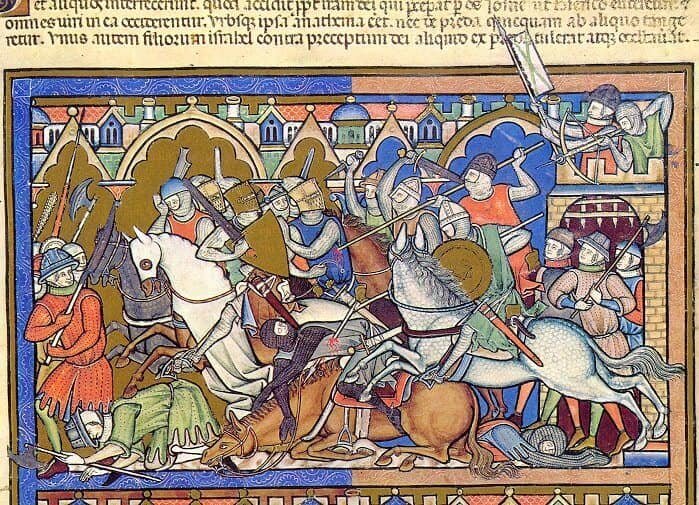 et aliquos interfecerunt. quod accidit iram dei qui
omnes uiri in ea occiderentur. Vrbsq ipsa anathema eet. nec de preda quicquam ab aliquo tange
retur. Vnus autem filiorum israel contra preceptum dei aliquid ex preda tulerat atq celauerat.